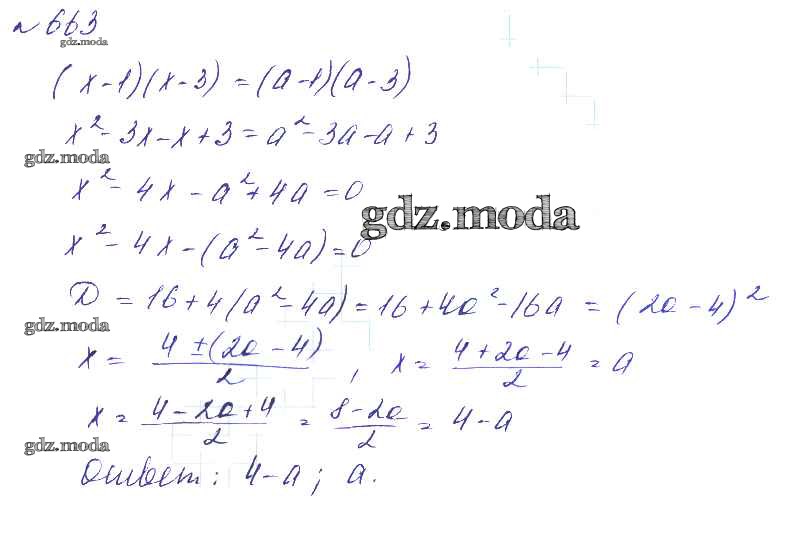 № 663
gdz.moda
(x-1)(x-3) = (a-1)(a-3)
x² - 3x - x + 3 = a² - 3a - a + 3
gdz.moda
x² - 4x - a² + 4a = 0
gdz.moda
x² - 4x - (a² - 4a) = 0
D = 16 + 4(a² - 4a) = 16 + 4a² - 16a = (2a - 4)²
gdz.moda
x = \frac{4 ± (2a - 4)}{2}, x = \frac{4 + 2a - 4}{2} = a
x = \frac{4 - 2a + 4}{2} = \frac{8 - 2a}{2} = 4 - a
gdz.moda
Ответ: 4 - a; a.